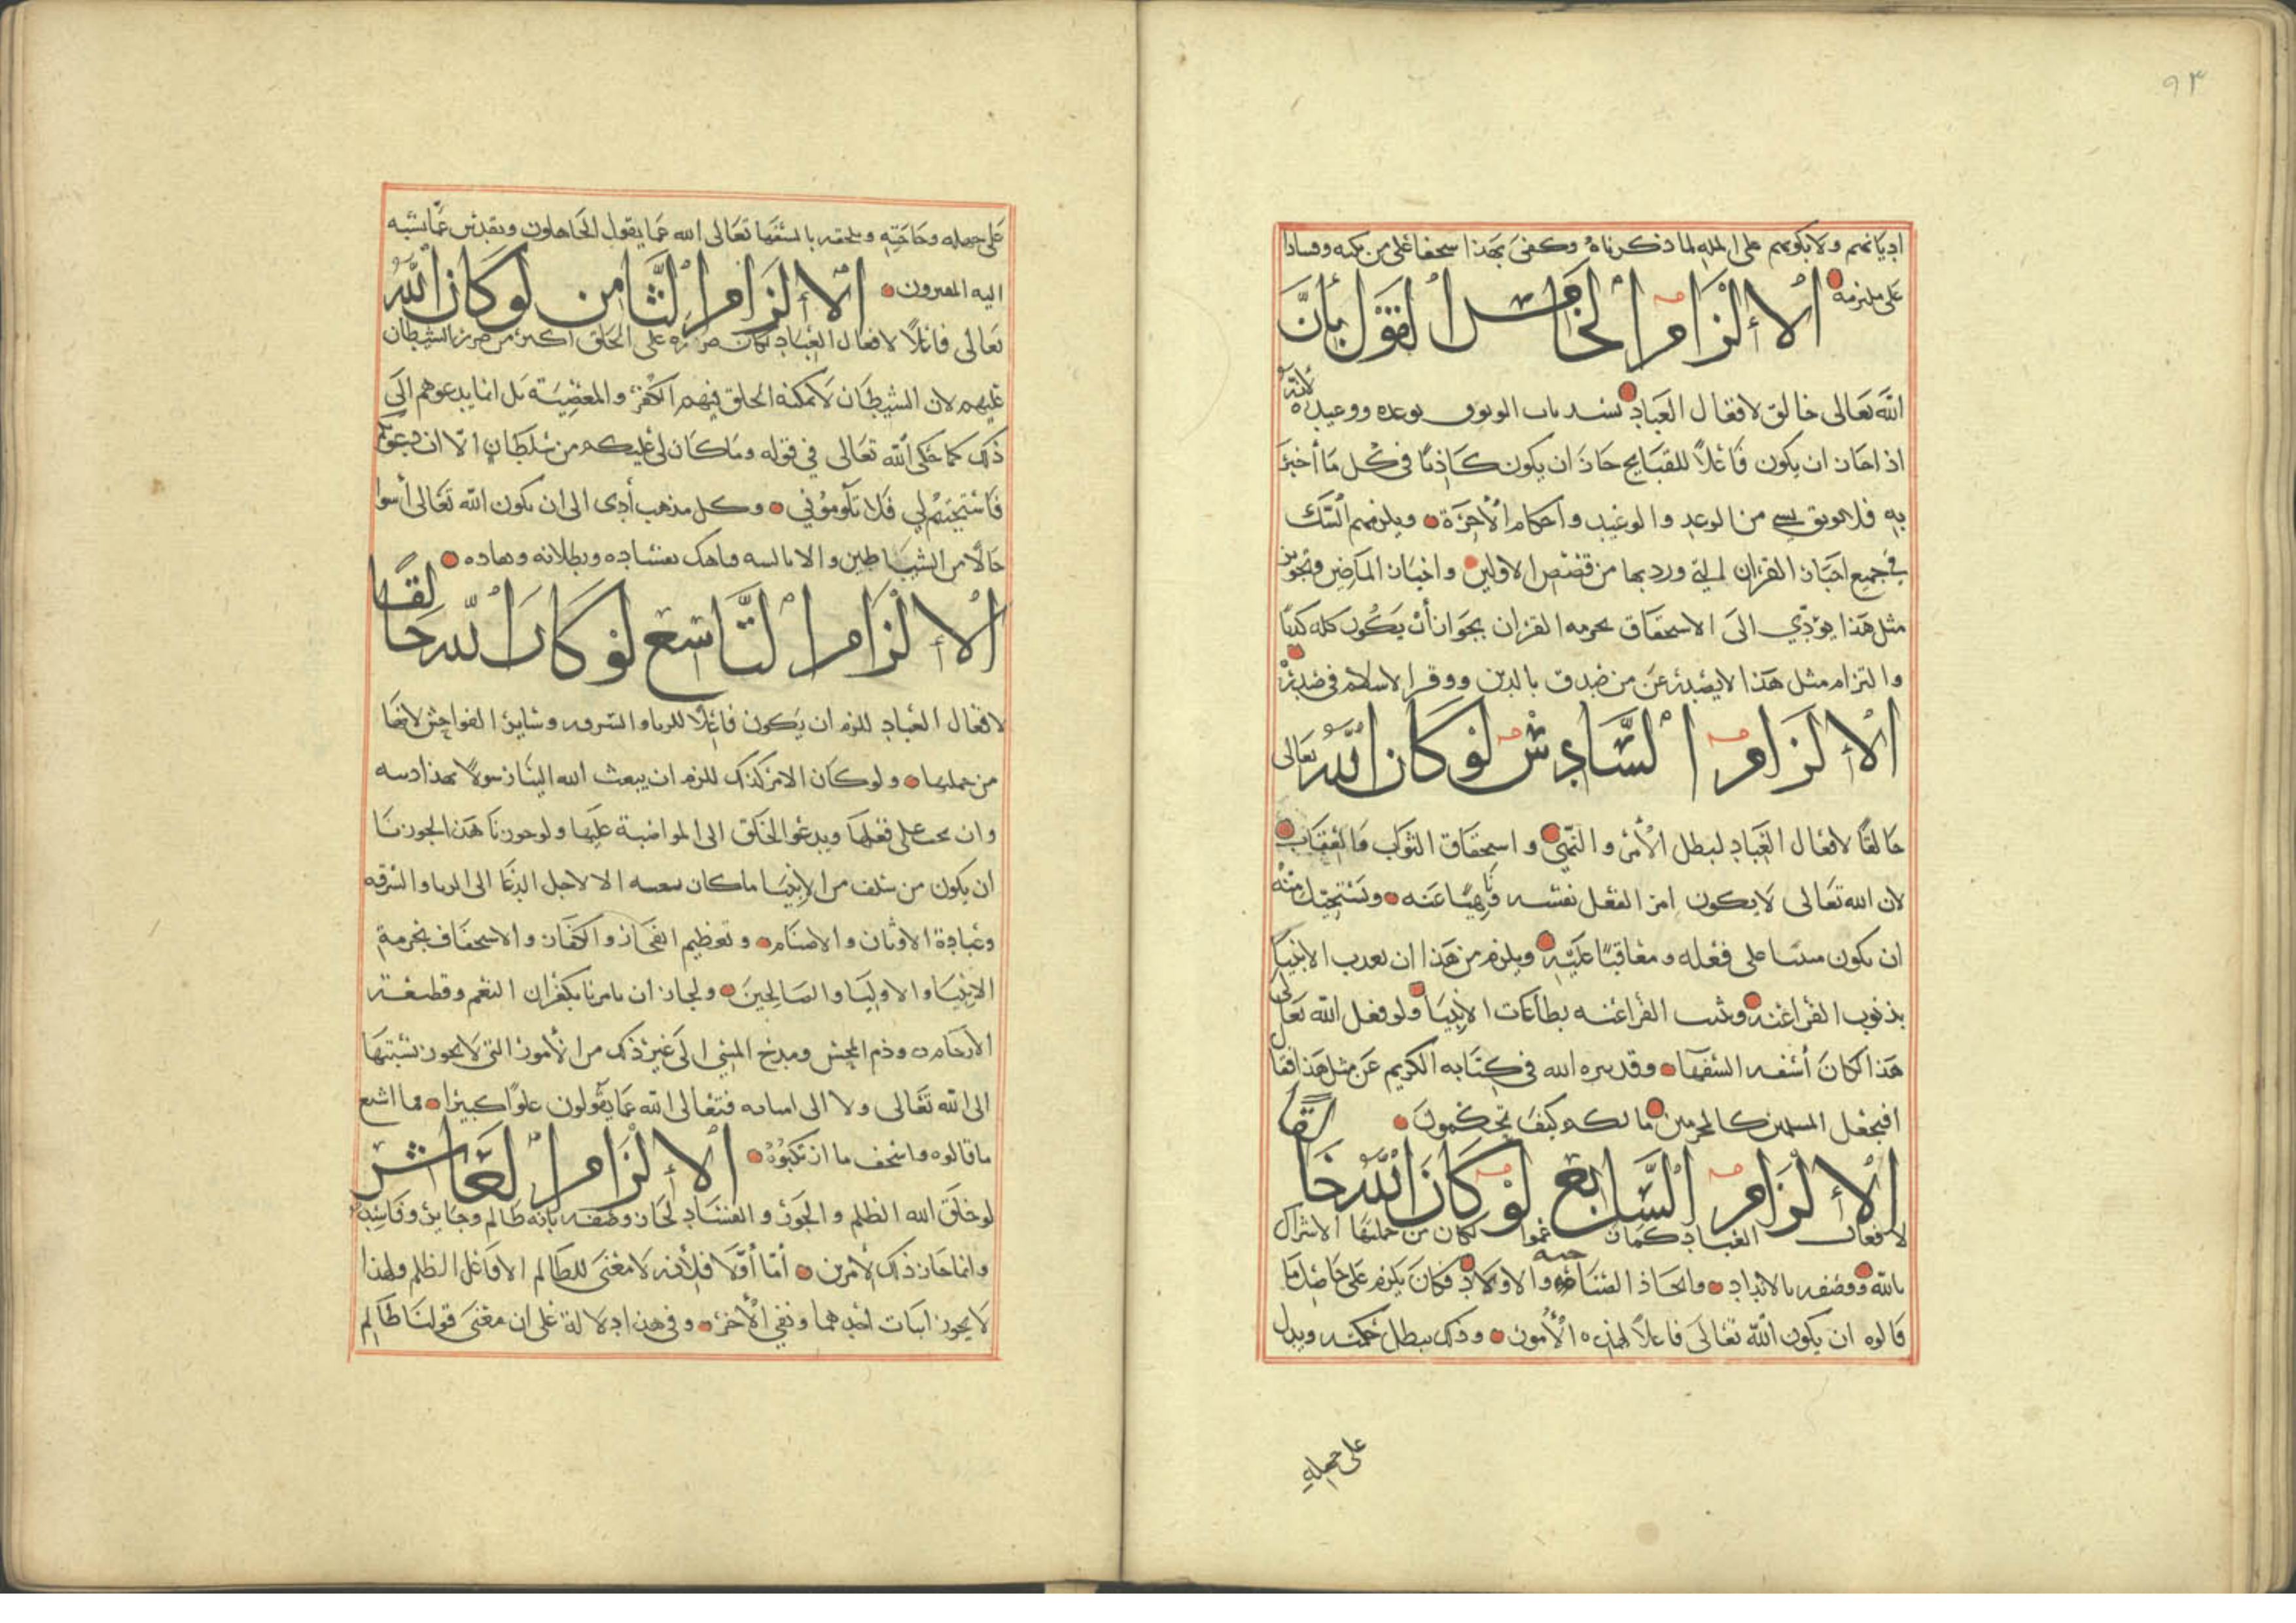 ٩٣
اديانهم ولا يكونهم على المله لما ذكرناه وكفى بهذا سخفا على من كنه وفسادا
على ملتزمه الإلزام الخامس القول بأن
الله تعالى خالق لافعال العباد يسد باب الوثوق بوعده ووعيده لانه
اذا جاز ان يكون فاعلا للقبايح جاز ان يكون كاذبا في كل ما أخبر
به فلا يوثق بشي من الوعد والوعيد واحكام الآخرة ويلزمهم الشك
في جميع اخبار القران التي ورد بها من قصص الاولين واخبار الماضين وتجويز
مثل هذا يؤدي الى الاستخفاق بحرمه القران بجواز أن يكون كله كذبا
والتزام مثل هذا لا يصدر عن من صدق بالدين ووقر الاسلام في صدره
الإلزام السادس لو كان الله تعالى
خالقا لافعال العباد لبطل الأمر والنهي واستحقاق الثواب والعقاب
لان الله تعالى لا يكون امر الفعل نفسه وناهيا عنه ويستحيل منه
ان يكون مثيبا على فعله ومعاقبا عليه ويلزم من هذا ان يعذب الانبيا
بذنوب الفراعنه ويثيب الفراعنه بطاعات الانبيا ولو فعل الله تعالى
هذا لكان أسفه السفها وقد نزه الله في كتابه الكريم عن مثل هذا فقال
افنجعل المسلمين كالمجرمين ما لكم كيف تحكمون
الإلزام السابع لو كان الله خالقا
لافعال العباد كما زعموا لكان من جملتها الاشراك
بالله ووصفه بالانداد واتخاذ الصاحبه والاولاد فكان يلزم على حاصل ما
قالوه ان يكون الله تعالى فاعلا لهذه الأمور وذلك يبطل حكمته ويدل
على جهله
على جهله وحاجته ويلحقه بالسفها تعالى الله عما يقول الجاهلون وتقدس عما نسبه
اليه المفترون الإلزام الثامن لو كان الله
تعالى فاعلا لافعال العباد لكان ضرره على الخلق اكثر من ضرر الشيطان
عليهم لان الشيطان لا يمكنه الخلق فيهم الكفر والمعصية بل انما يدعوهم الى
ذلك كما حكى الله تعالى في قوله وما كان لي عليكم من سلطان الا ان دعوتكم
فاستجبتم لي فلا تلوموني وكل مذهب أدى الى ان يكون الله تعالى أسوا
حالا من الشياطين والابالسه فناهيك بفساده وبطلانه وعناده
الإلزام التاسع لو كان الله خالقا
لافعال العباد للزم ان يكون فاعلا للزنا والسرقه وساير الفواحش لانها
من جملتها ولو كان الامر كذلك للزم ان يبعث الله الينا رسولا بهذا دينه
وان يحث على فعلها ويدعو الخلق الى المواضبة عليها ولو جوزنا هذا لجوزنا
ان يكون من سلف من الانبيا ما كان بعثه الا لاجل الدعا الى الزنا والسرقه
وعبادة الاوثان والاصنام وتعظيم الفجار والكفار والاستخفاف بحرمة
الانبيا والاوليا والصالحين ولجاز ان يامرنا بكفران النعم وقطيعة
الأرحام وذم المحسن ومدح المسي الى غير ذلك من الأمور التي لا يجوز نسبتها
الى الله تعالى ولا الى انبيائه فتعالى الله عما يقولون علوا كبيرا فما اشنع
ما قالوه واسخف ما ارتكبوه الإلزام العاشر
لو خلق الله الظلم والجور والفساد لجاز وصفه بانه ظالم وجاير وفاسد
وانما جاز ذلك لأمرين أما أولا فلأنه لا معنى للظالم الا فاعل الظلم ولهذا
لا يجوز اثبات أحدهما ونفي الأخر وفي هذا دلالة على ان معنى قولنا ظالم